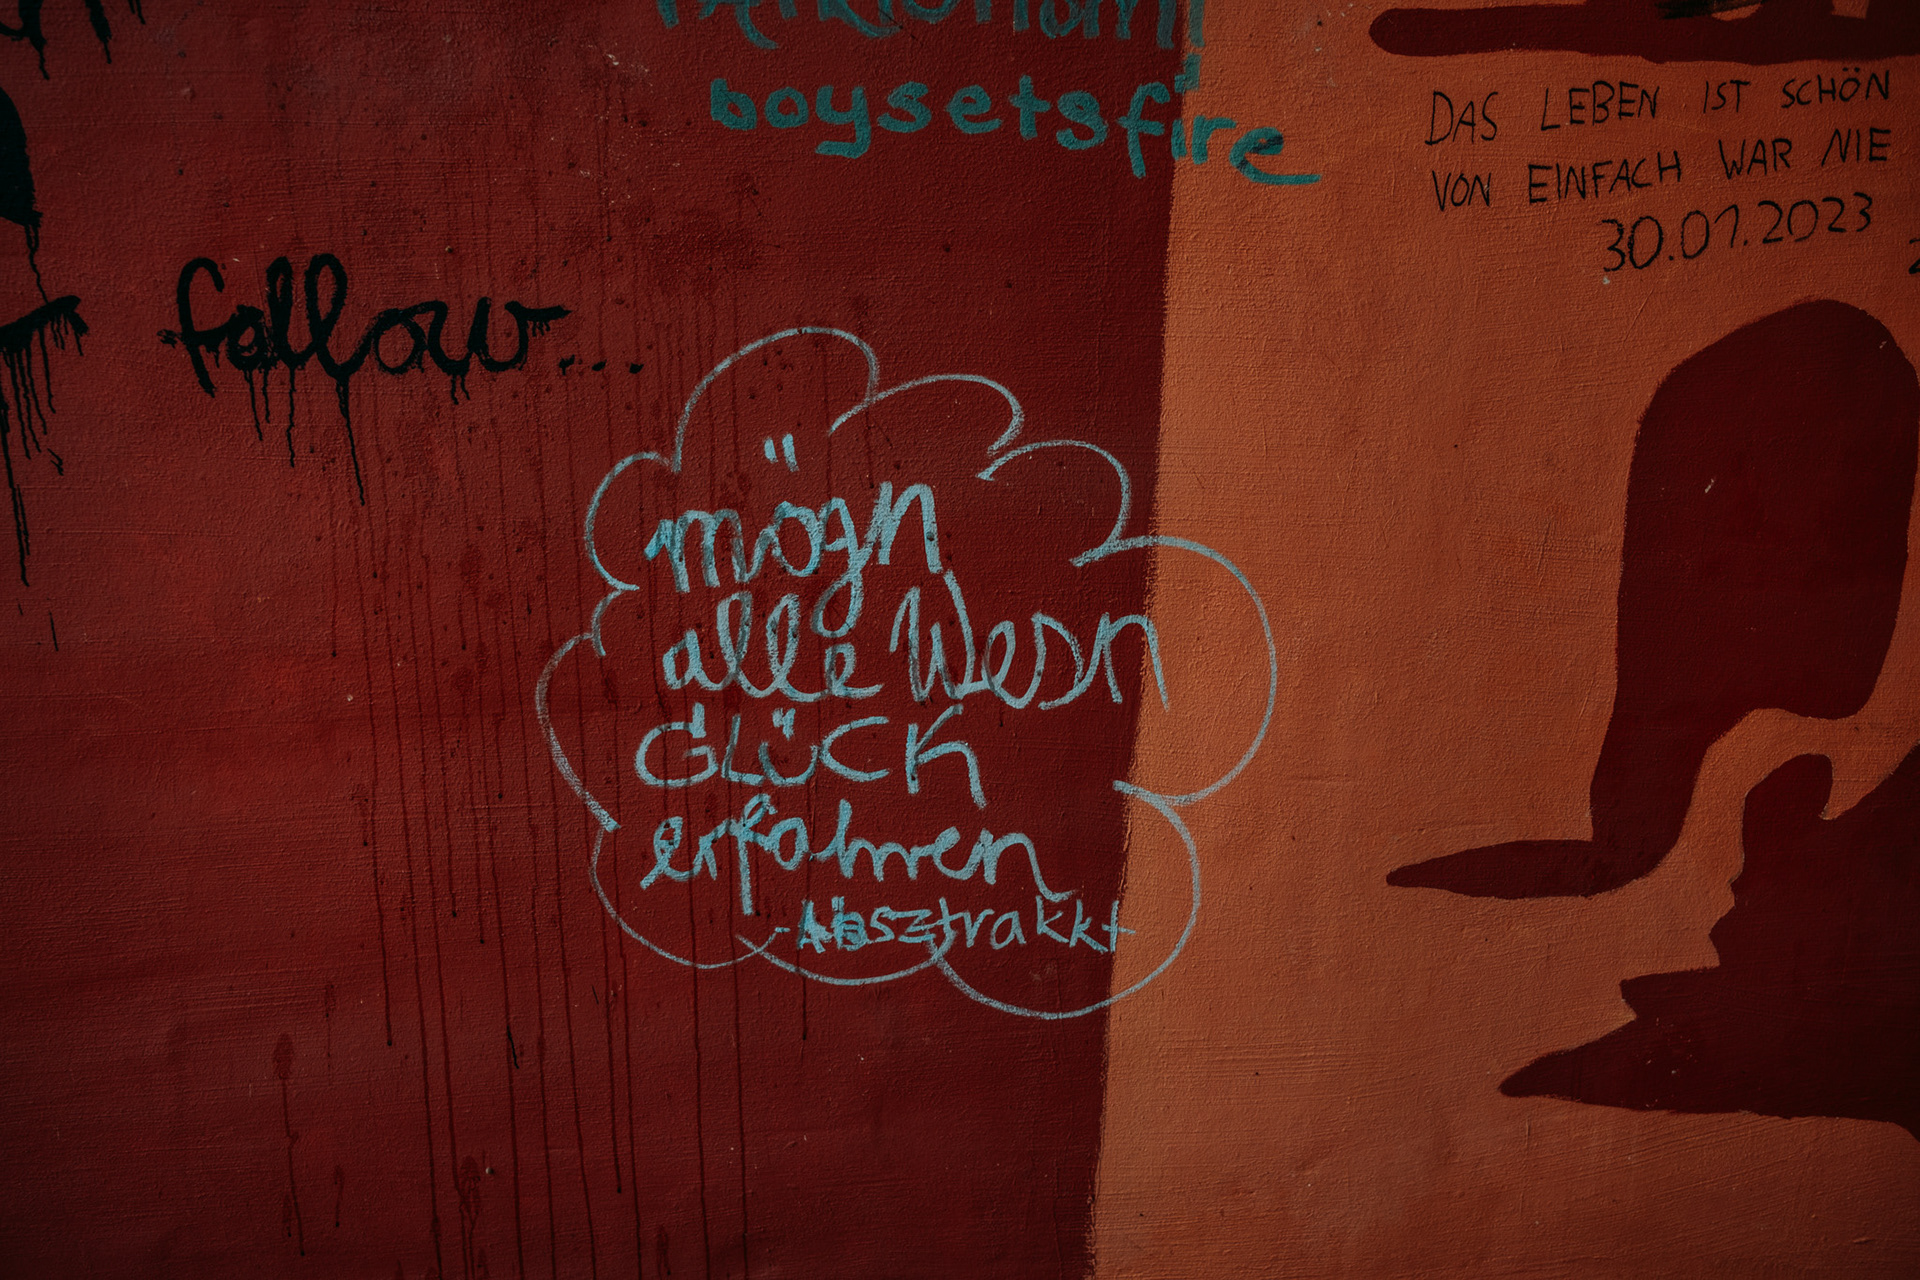 boysetsfire
DAS LEBEN IST SCHÖN
VON EINFACH WAR NIE
30.01.2023
follow...
mögn
alle Wesn
GLÜCK
erfahren
-Absztrakkt